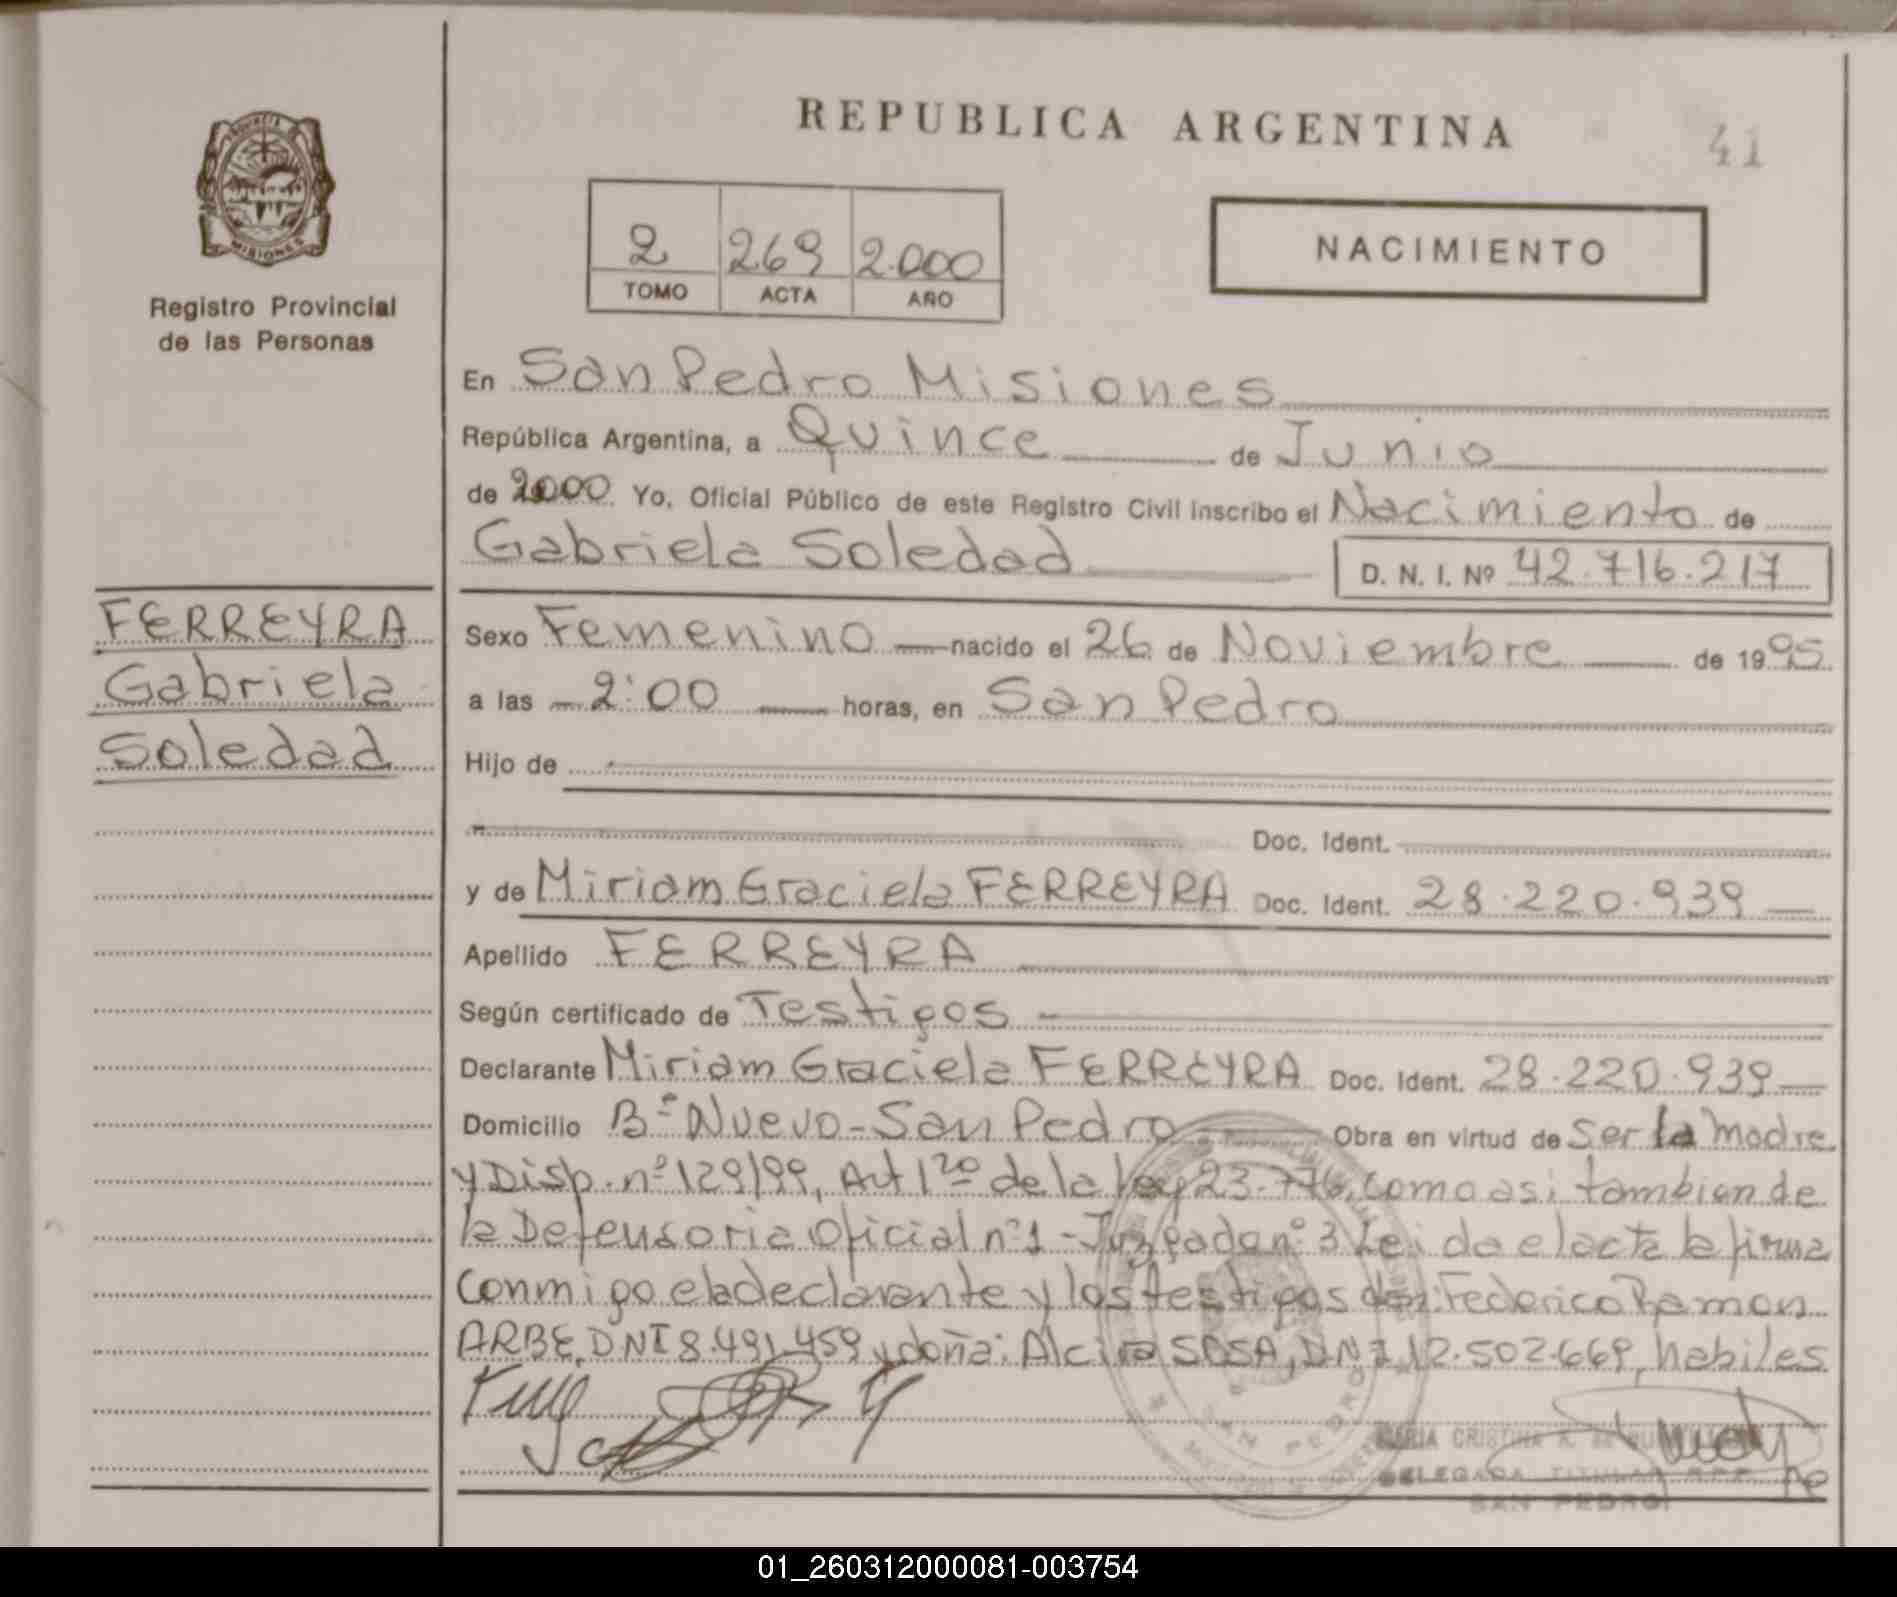 REPUBLICA ARGENTINA
41
PROVINCIA DE
MISIONES
Registro Provincial
de las Personas
2 269 2.000
TOMO ACTA AÑO
NACIMIENTO
En San Pedro Misiones
República Argentina, a Quince de Junio
de 2000 Yo, Oficial Público de este Registro Civil inscribo el Nacimiento de
Gabriela Soledad D. N. I. Nº 42.716.217
FERREYRA
Gabriela
Soledad
Sexo Femenino nacido el 26 de Noviembre de 1995
a las 2:00 horas, en San Pedro
Hijo de
Doc. Ident.
y de Miriam Graciela FERREYRA Doc. Ident. 28.220.939
Apellido FERREYRA
Según certificado de Testigos
Declarante Miriam Graciela FERREYRA Doc. Ident. 28.220.939
Domicilio Bº Nuevo - San Pedro Obra en virtud de Ser la Madre
y Disp. nº 129/99, Art 1ro de la ley 23.776, como asi tambien de
la Defensoria Oficial nº1 - Juzgado nº 3 Leida el acta la firma
conmigo el a declarante y los testigos don: Federico Ramon
ARBE, DNI 8.491.459 y doña: Alcira SOSA, DNI 12.502.669, habiles
SAN PEDRO
MARIA CRISTINA R. de
DELEGADA TITULAR R.P.P.
SAN PEDRO
01_260312000081-003754